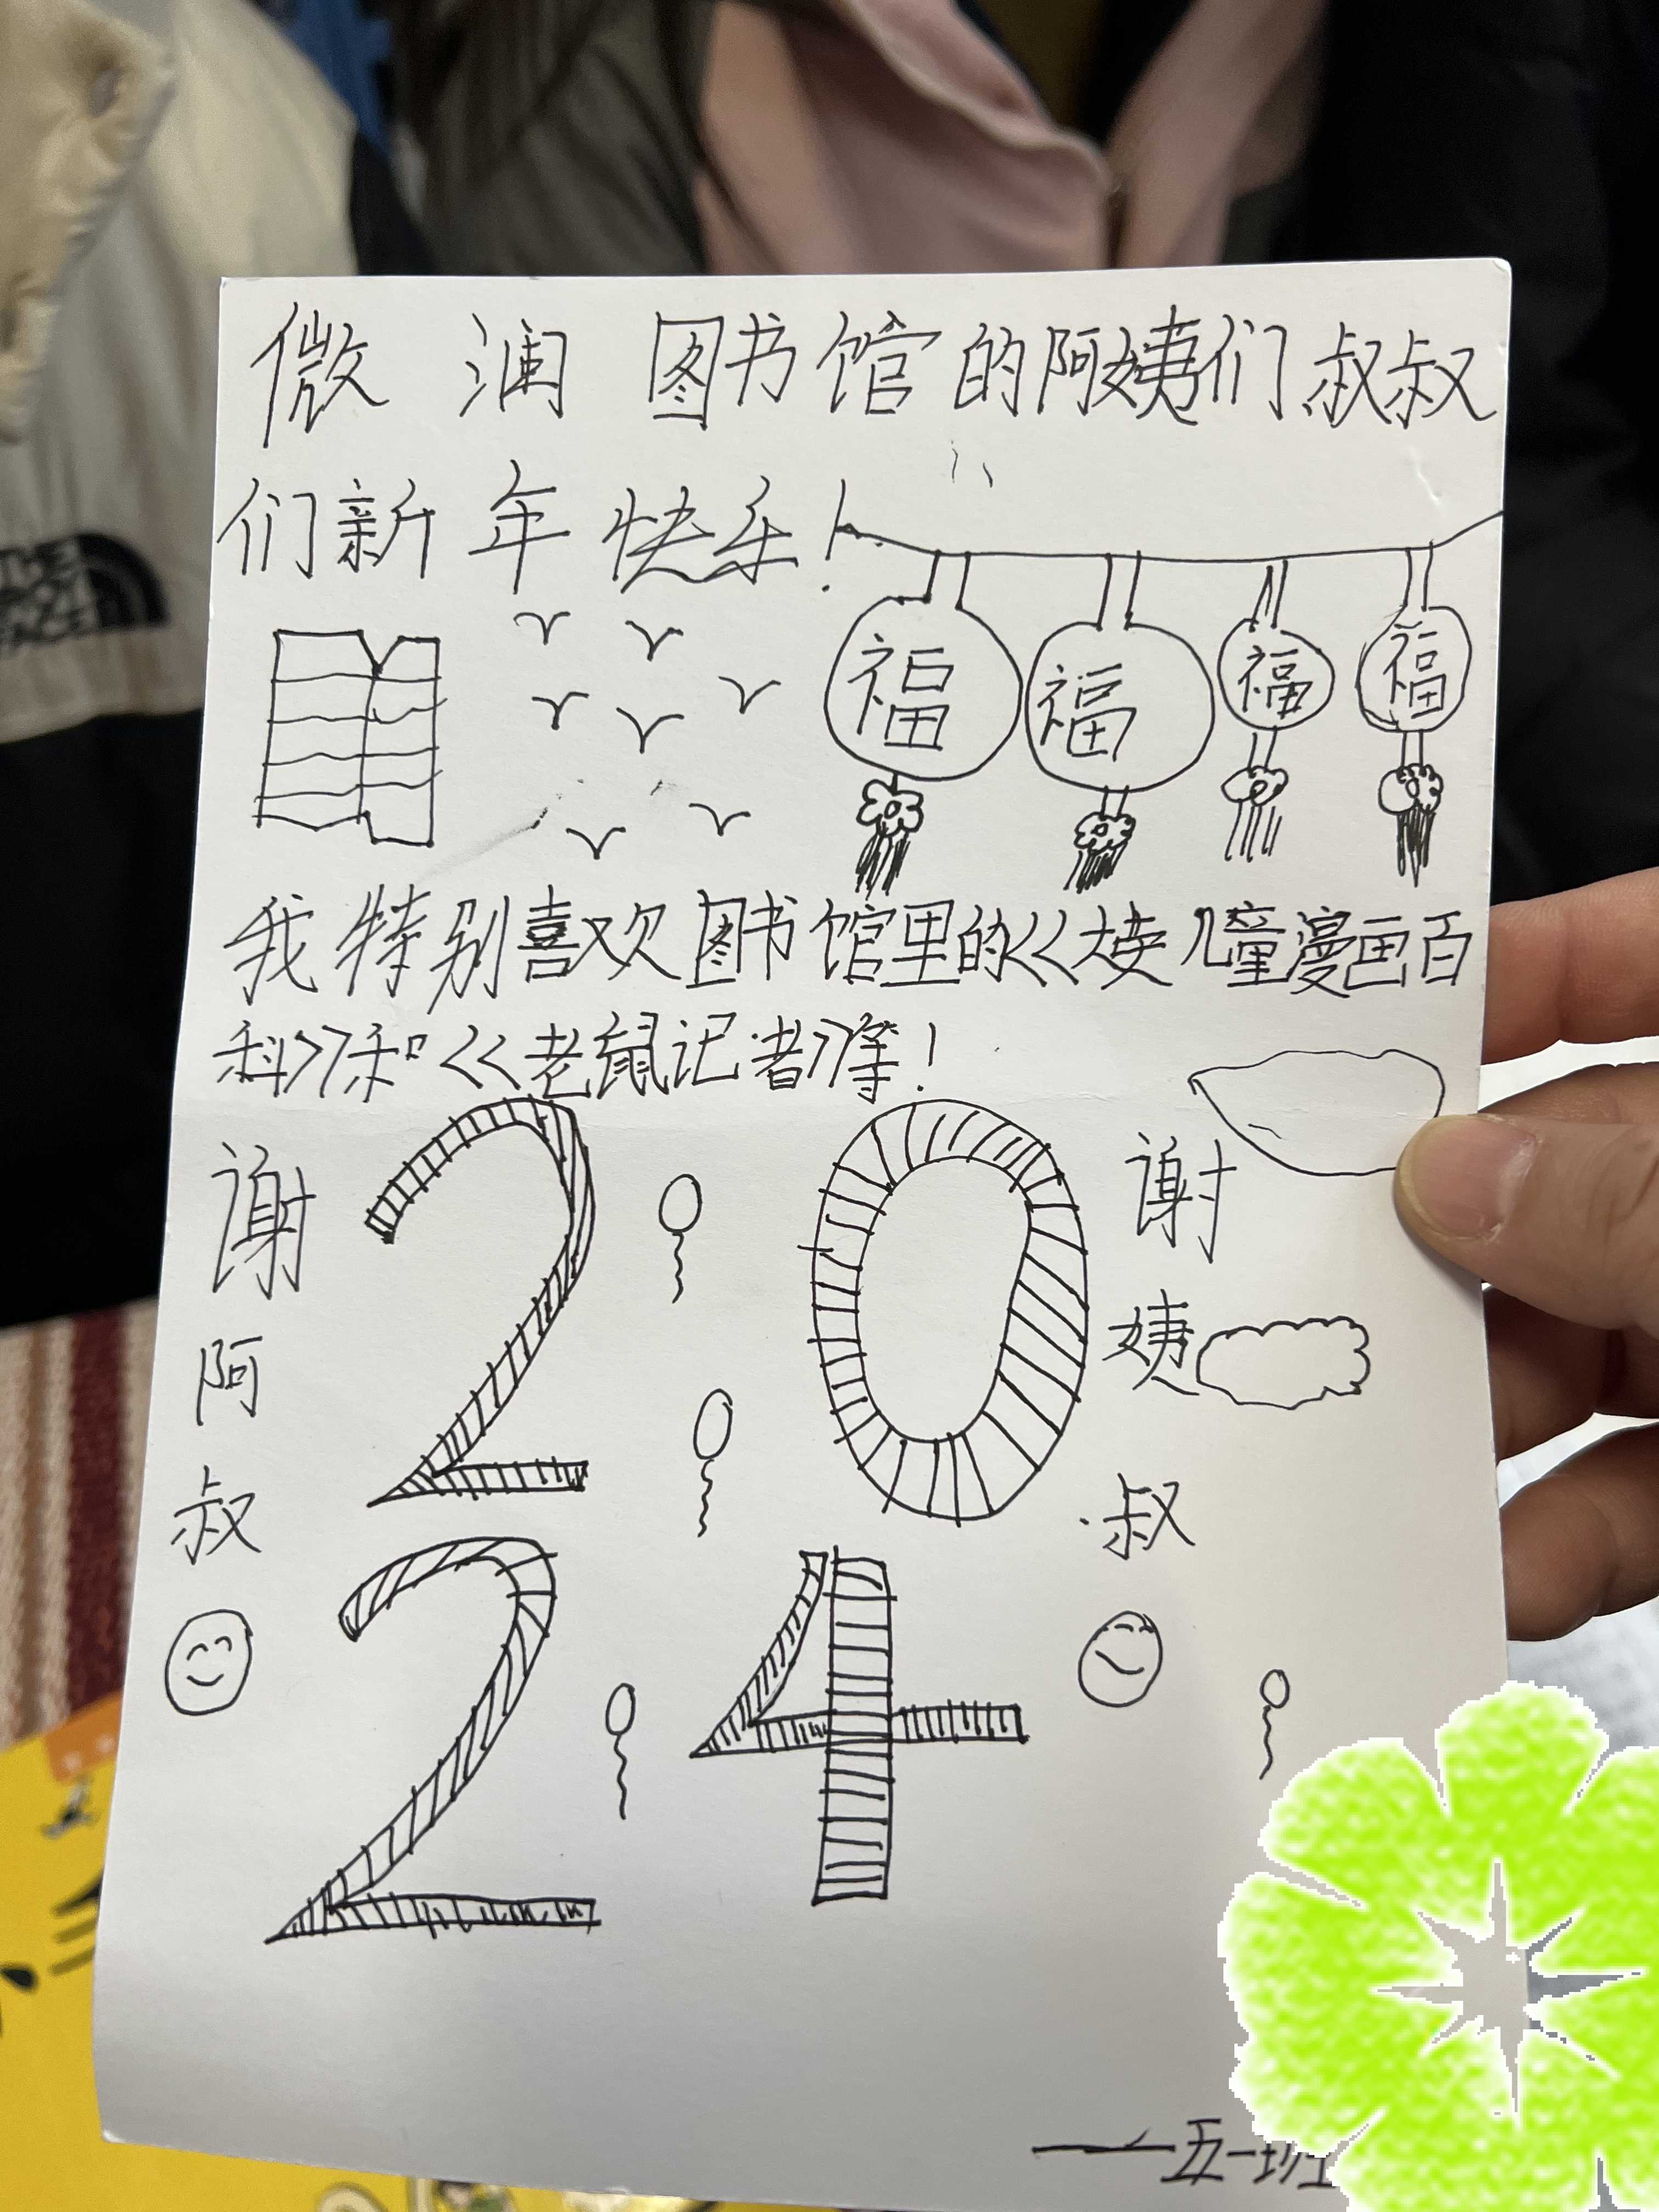 微澜图书馆的阿姨们叔叔
们新年快乐！
福 福 福 福
我特别喜欢图书馆里的<<大英儿童漫画百
科>>和<<老鼠记者>>等！
谢 谢
阿 姨
叔 叔
2 0
2 4
——五一班
THE
NORTH
FACE